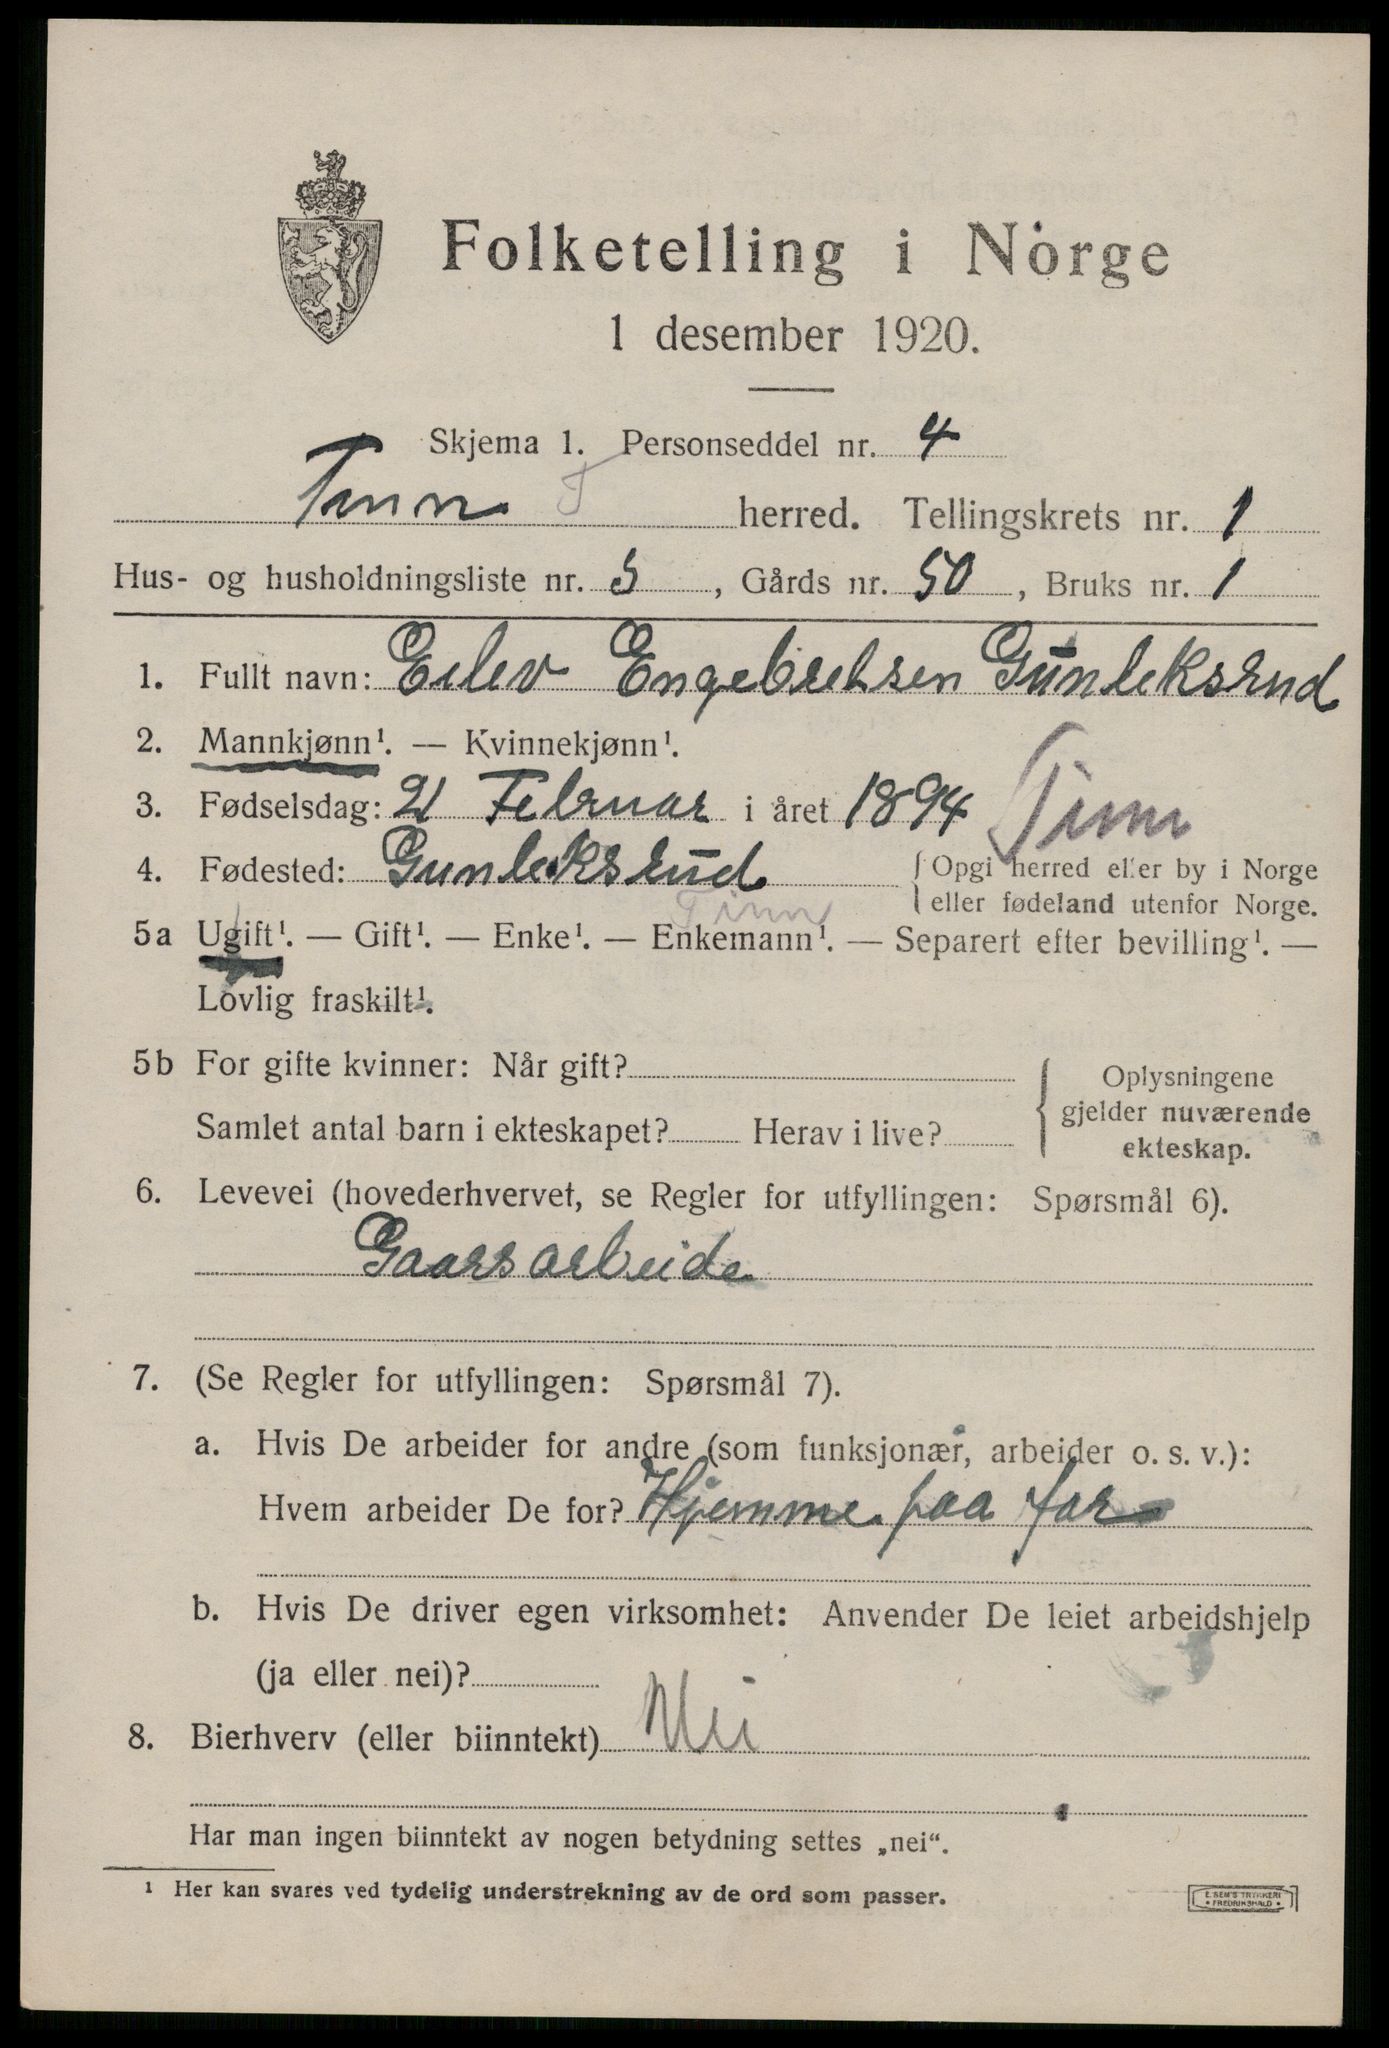 Folketelling i Norge
1 desember 1920.
Skjema 1. Personseddel nr. 4
Tinn T herred. Tellingskrets nr. 1
Hus- og husholdningsliste nr. 5, Gårds nr. 50, Bruks nr. 1
1. Fullt navn: Eilev Engebretsen Gunleksrud
2. Mannkjønn¹. — Kvinnekjønn¹.
3. Fødselsdag: 21 Februar i året 1894 Tinn
4. Fødested: Gunleksrud { Opgi herred eller by i Norge
eller fødeland utenfor Norge.
Tinn
5a Ugift¹. — Gift¹. — Enke¹. — Enkemann¹. — Separert efter bevilling¹. —
Lovlig fraskilt¹.
5b For gifte kvinner: Når gift?
Samlet antal barn i ekteskapet? Herav i live?
{ Oplysningene
gjelder nuværende
ekteskap.
6. Levevei (hovederhvervet, se Regler for utfyllingen: Spørsmål 6).
Gaarsarbeide
7. (Se Regler for utfyllingen: Spørsmål 7).
a. Hvis De arbeider for andre (som funksjonær, arbeider o. s. v.):
Hvem arbeider De for? Hjemme paa far
b. Hvis De driver egen virksomhet: Anvender De leiet arbeidshjelp
(ja eller nei)?
8. Bierhverv (eller biinntekt) Nei
Har man ingen biinntekt av nogen betydning settes „nei“.
¹ Her kan svares ved tydelig understrekning av de ord som passer.
E. SEM'S TRYKKERI
• FREDRIKSHALD •